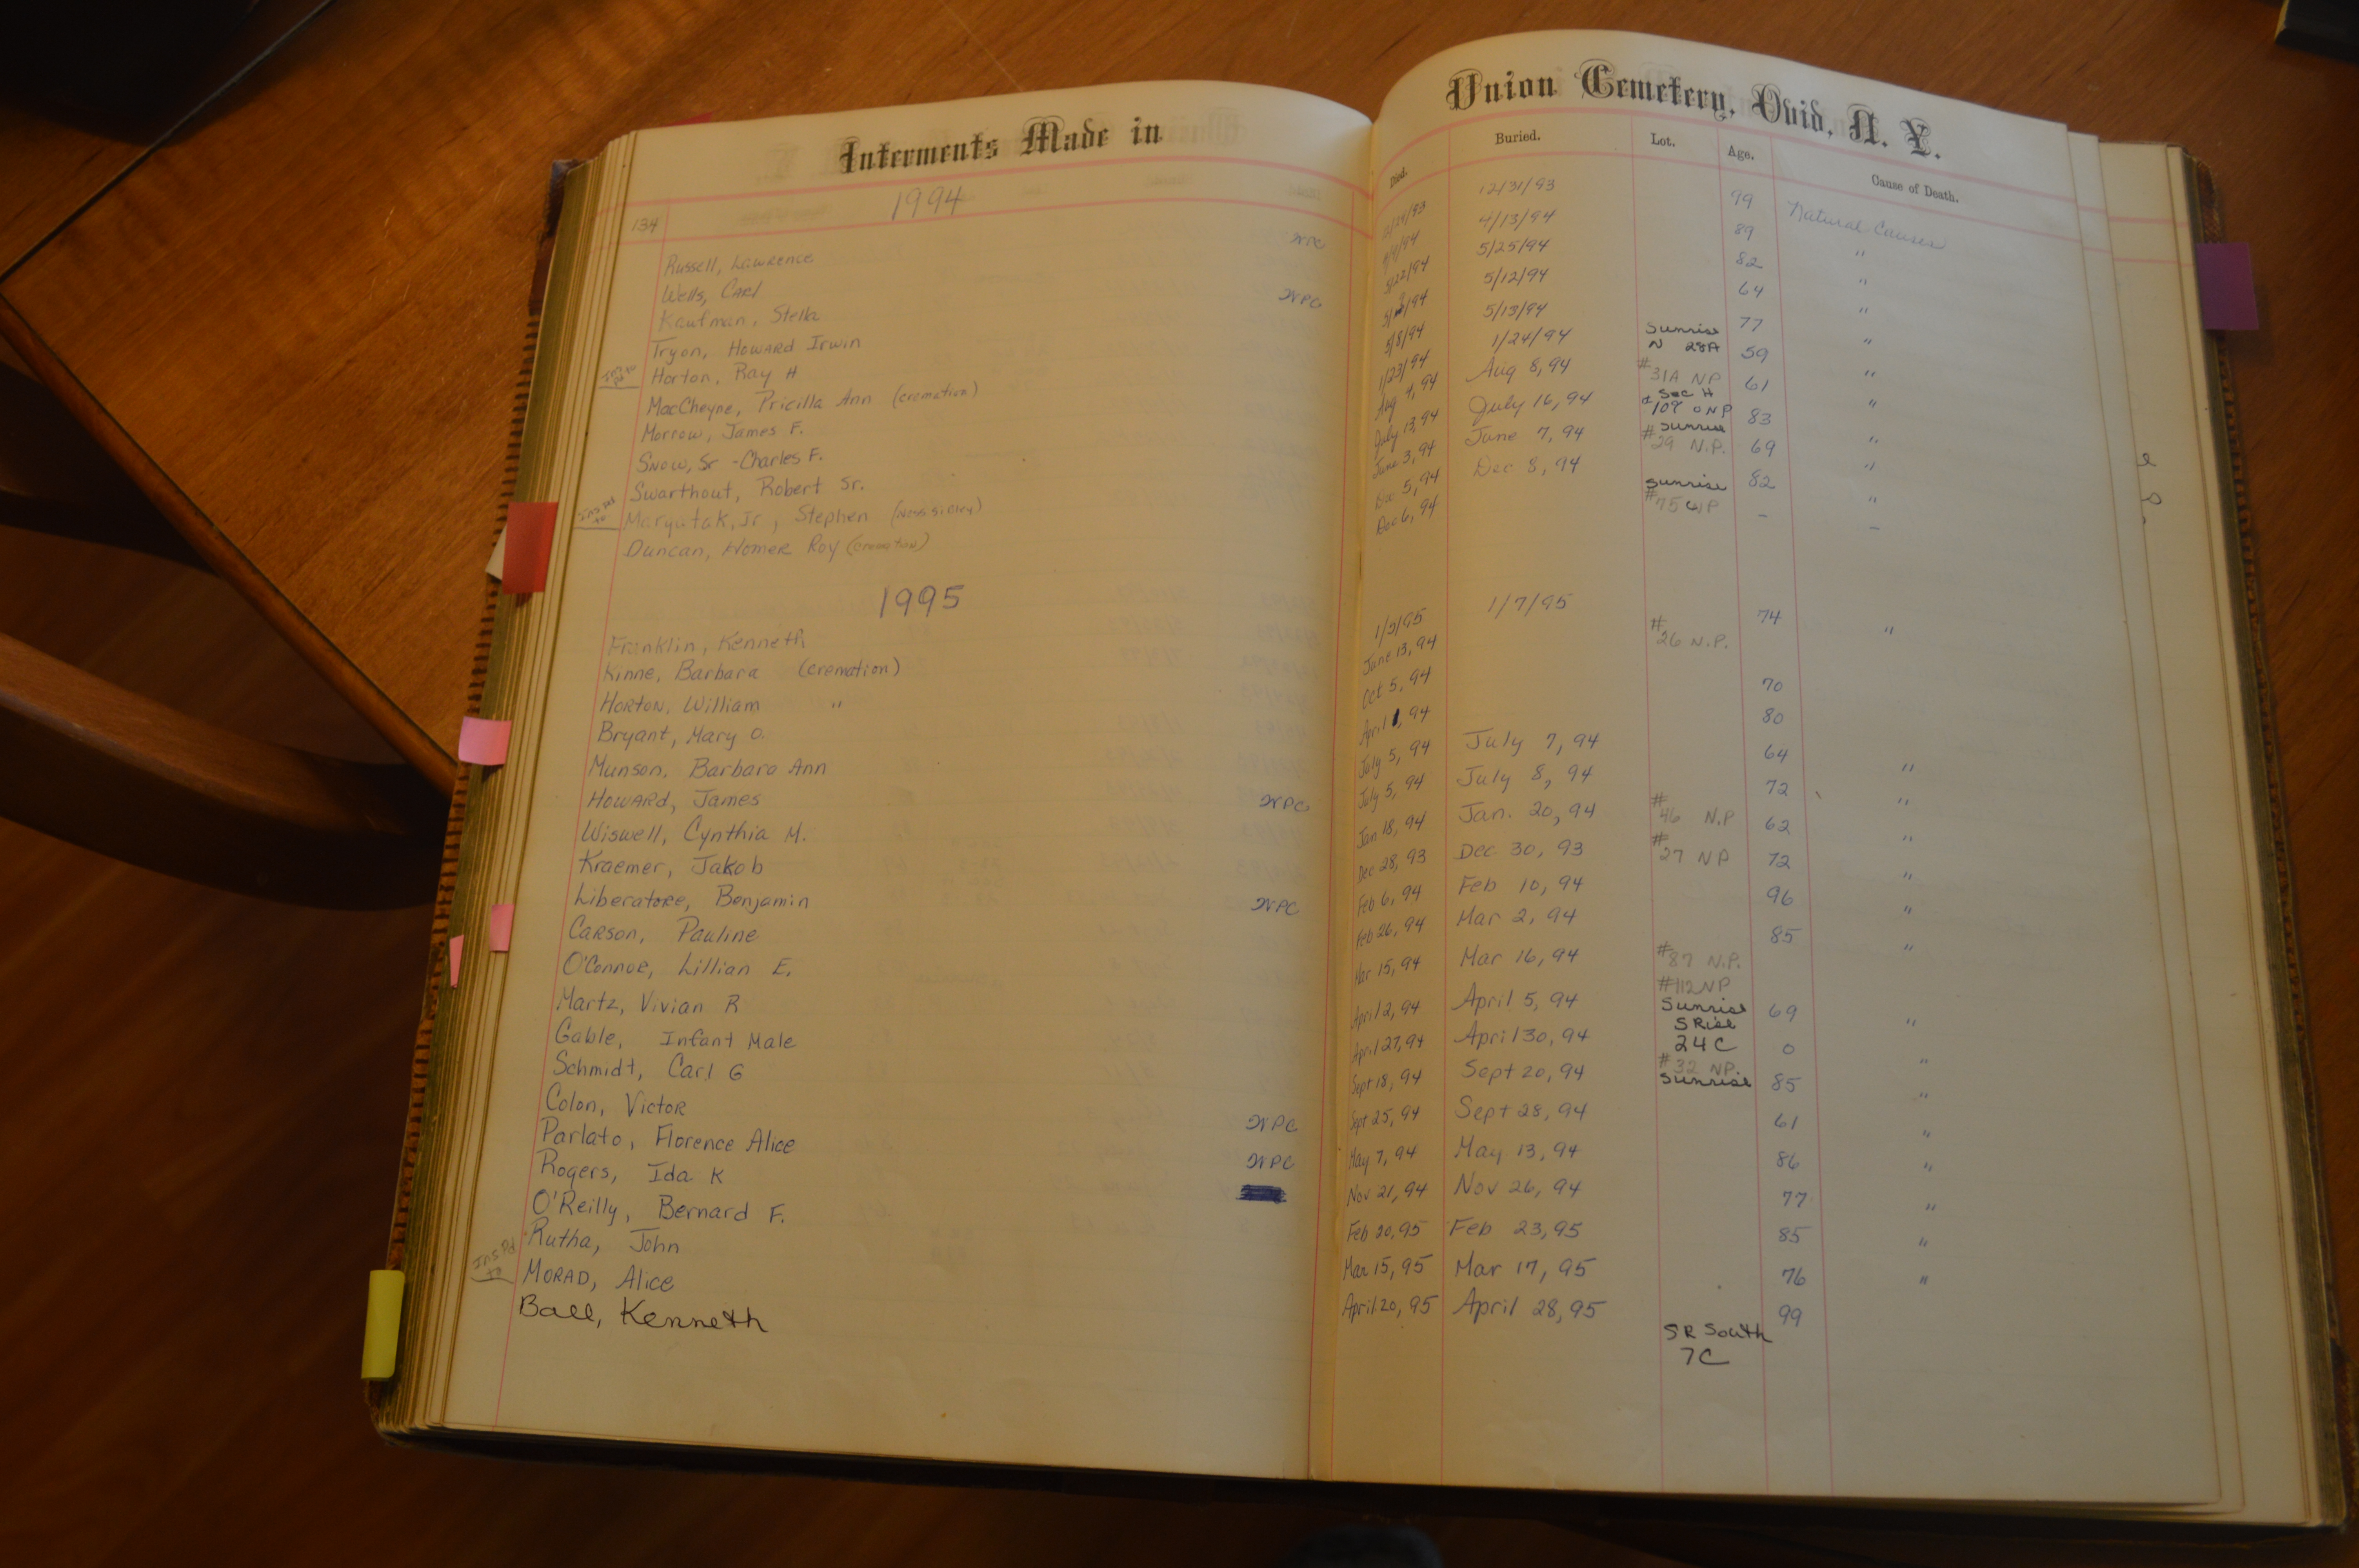 Interments Made in
134 1994
Russell, Lawrence NPC
Wells, Carl
Kaufman, Stella NPC
Tryon, Howard Irwin
Ins Pd to Horton, Ray H
MacCheyne, Pricilla Ann (cremation)
Morrow, James F.
Snow, Sr - Charles F.
Swarthout, Robert Sr.
Ins Pd to Maryatak, Jr, Stephen
Duncan, Homer Roy (cremation)
1995
Franklin, Kenneth
Kinne, Barbara (cremation)
Horton, William "
Bryant, Mary O.
Munson, Barbara Ann
Howard, James NPC
Wiswell, Cynthia M.
Kraemer, Jakob
Liberatore, Benjamin NPC
Carson, Pauline
O'Connor, Lillian E.
Martz, Vivian R
Gable, Infant Male
Schmidt, Carl G
Colon, Victor
Parlato, Florence Alice NPC
Rogers, Ida K NPC
O'Reilly, Bernard F.
Rutha, John
Ins Pd to Morad, Alice
Ball, Kenneth
Union Cemetery, Ovid, N. Y.
Died. Buried. Lot. Age. Cause of Death.
12/31/93 99 Natural Causes
4/13/94 89 "
5/22/94 5/25/94 82 "
5/12/94 64 "
5/8/94 5/13/94 77 "
1/23/94 1/24/94 Sunrise N 28A 59 "
Aug 4, 94 Aug 8, 94 #31A NP 61 "
July 13, 94 July 16, 94 Sec H 83 "
June 3, 94 June 7, 94 Sunrise #29 N.P. 69 "
Dec 5, 94 Dec 8, 94 82 "
Dec 6, 94 Sunrise #75 - -
1/5/95 1/7/95 74 "
June 13, 94 #26 N.P.
Oct 5, 94 70
April 1, 94 80
July 5, 94 July 7, 94 64 "
July 5, 94 July 8, 94 72 "
Jan 18, 94 Jan. 20, 94 #46 N.P 62 "
Dec 28, 93 Dec 30, 93 #27 NP 72 "
Feb 6, 94 Feb 10, 94 96 "
Feb 26, 94 Mar 2, 94 85 "
Mar 15, 94 Mar 16, 94 #87 N.P.
April 2, 94 April 5, 94 #112 NP Sunrise 69 "
April 27, 94 April 30, 94 SRise 24C 0 "
Sept 18, 94 Sept 20, 94 #32 NP. Sunrise 85 "
Sept 25, 94 Sept 28, 94 61 "
May 7, 94 May 13, 94 86 "
Nov 21, 94 Nov 26, 94 77 "
Feb 20, 95 Feb 23, 95 85 "
Mar 15, 95 Mar 17, 95 76 "
April 20, 95 April 28, 95 99
SR South
7C